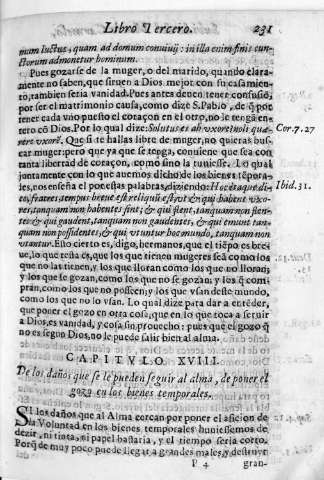 Libro Tercero. 231
mum luctus, quam ad domum conuiuij: in illa enim finis cun-
ctorum admonetur hominum.
Pues gozarse de la muger, o del marido, quando clara-
mente no saben, que siruen a Dios mejor con su casamien-
to, tambien seria vanidad. Pues antes deuen tener confusiõ,
por ser el matrimonio causa, como dize S. Pablo, de q̃ por
tener cada vno puesto el coraçon en el otro, no le tengã en-
tero cõ Dios. Por lo qual dize: Solutus es ab vxore? noli quæ- Cor. 7. 27
rere vxorẽ. Que si te hallas libre de muger, no quieras bus-
car muger: pero que ya que se tenga, conuiene que sea con
tanta libertad de coraçon, como sino la tuuiesse. Lo qual
juntamente con lo que auemos dicho de los bienes tẽpora-
les, nos enseña el por estas palabras, diziendo: Hoc itaque di- Ibid. 31.
co, fratres, tempus breue est: reliquũ est, vt & qui habent vxo-
res, tanquam non habentes sint; & qui flent, tanquam non flen-
tes: & qui gaudent, tanquam non gaudentes, & qui emunt tan-
quam non possidentes, & qui vtuntur hoc mundo, tanquam non
vtantur. Esto cierto es, digo, hermanos, que el tiẽpo es bre-
ue, lo que resta es, que los que tienen mugeres sea como los
que no las tienen, y los que lloran como los que no lloran;
y los que se gozan, como los que no se gozan; y los q̃ com-
prãn, como los que no posseen, y los que vsan deste mundo,
como los que no lo vsan. Lo qual dize para dar a entẽder,
que poner el gozo en otra cosa, que en lo que toca a seruir
a Dios, es vanidad, y cosa sin prouecho: pues que el gozo q̃
no es segun Dios, no le puede salir bien al alma.
CAPITVLO XVIII.
De los daños que se le pueden seguir al alma, de poner el
gozo en los bienes temporales.
SI los daños que al Alma cercan por poner el aficion de
la Voluntad en los bienes temporales huuiessemos de
dezir, ni tinta, ni papel bastaria, y el tiempo seria corto.
Porq̃ de muy poco puede llegar a grandes males, y destruyr
P 4 gran-